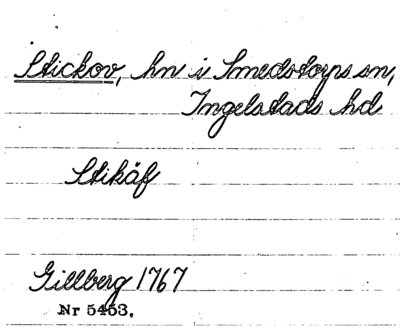 Stickov, hn i Smedstorps sn,
Ingelstads hd
Stikäf
Gillberg 1767
Nr 5453.